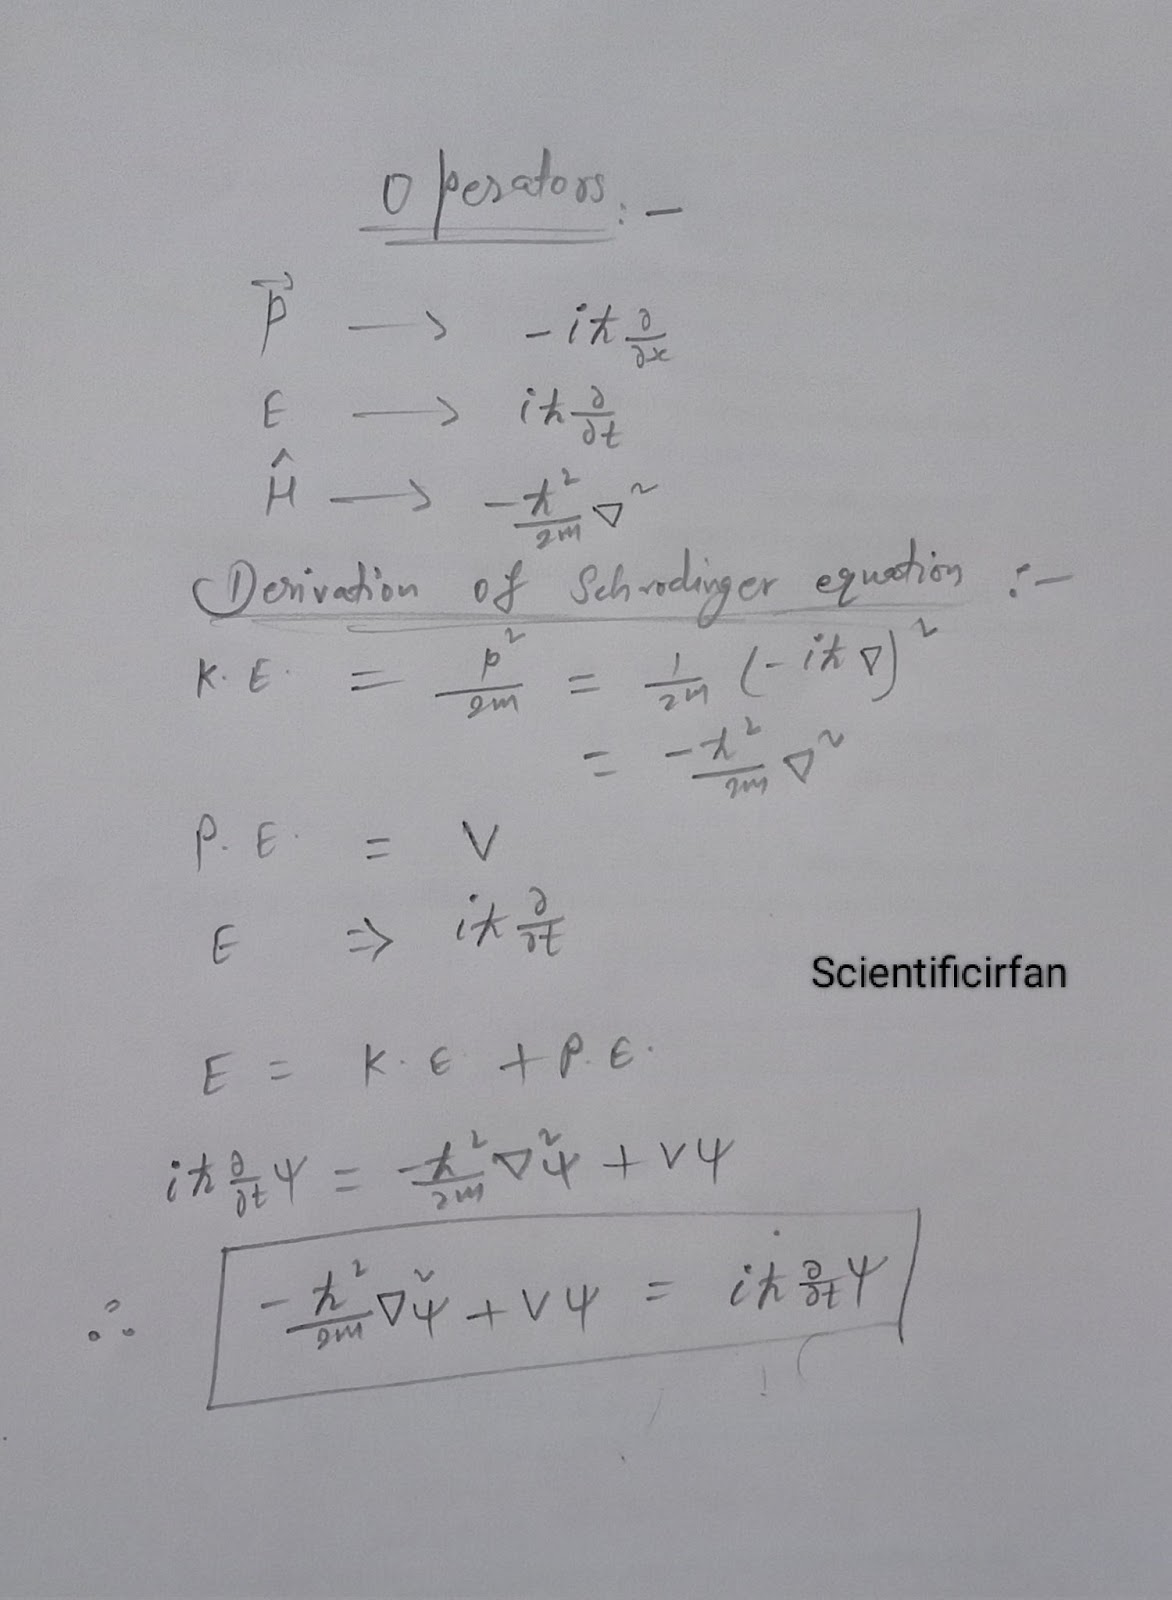 Operators :-
P⃗ → -iħ ∂/∂x
E → iħ ∂/∂t
Ĥ → -ħ²/2m ∇²
Derivation of Schrodinger equation :-
K.E. = p²/2m = 1/2m (-iħ∇)²
= -ħ²/2m ∇²
P.E. = V
E ⇒ iħ ∂/∂t
Scientificirfan
E = K.E + P.E.
iħ ∂/∂t ψ = -ħ²/2m ∇²ψ + Vψ
∴ -ħ²/2m ∇²ψ + Vψ = iħ ∂/∂t ψ